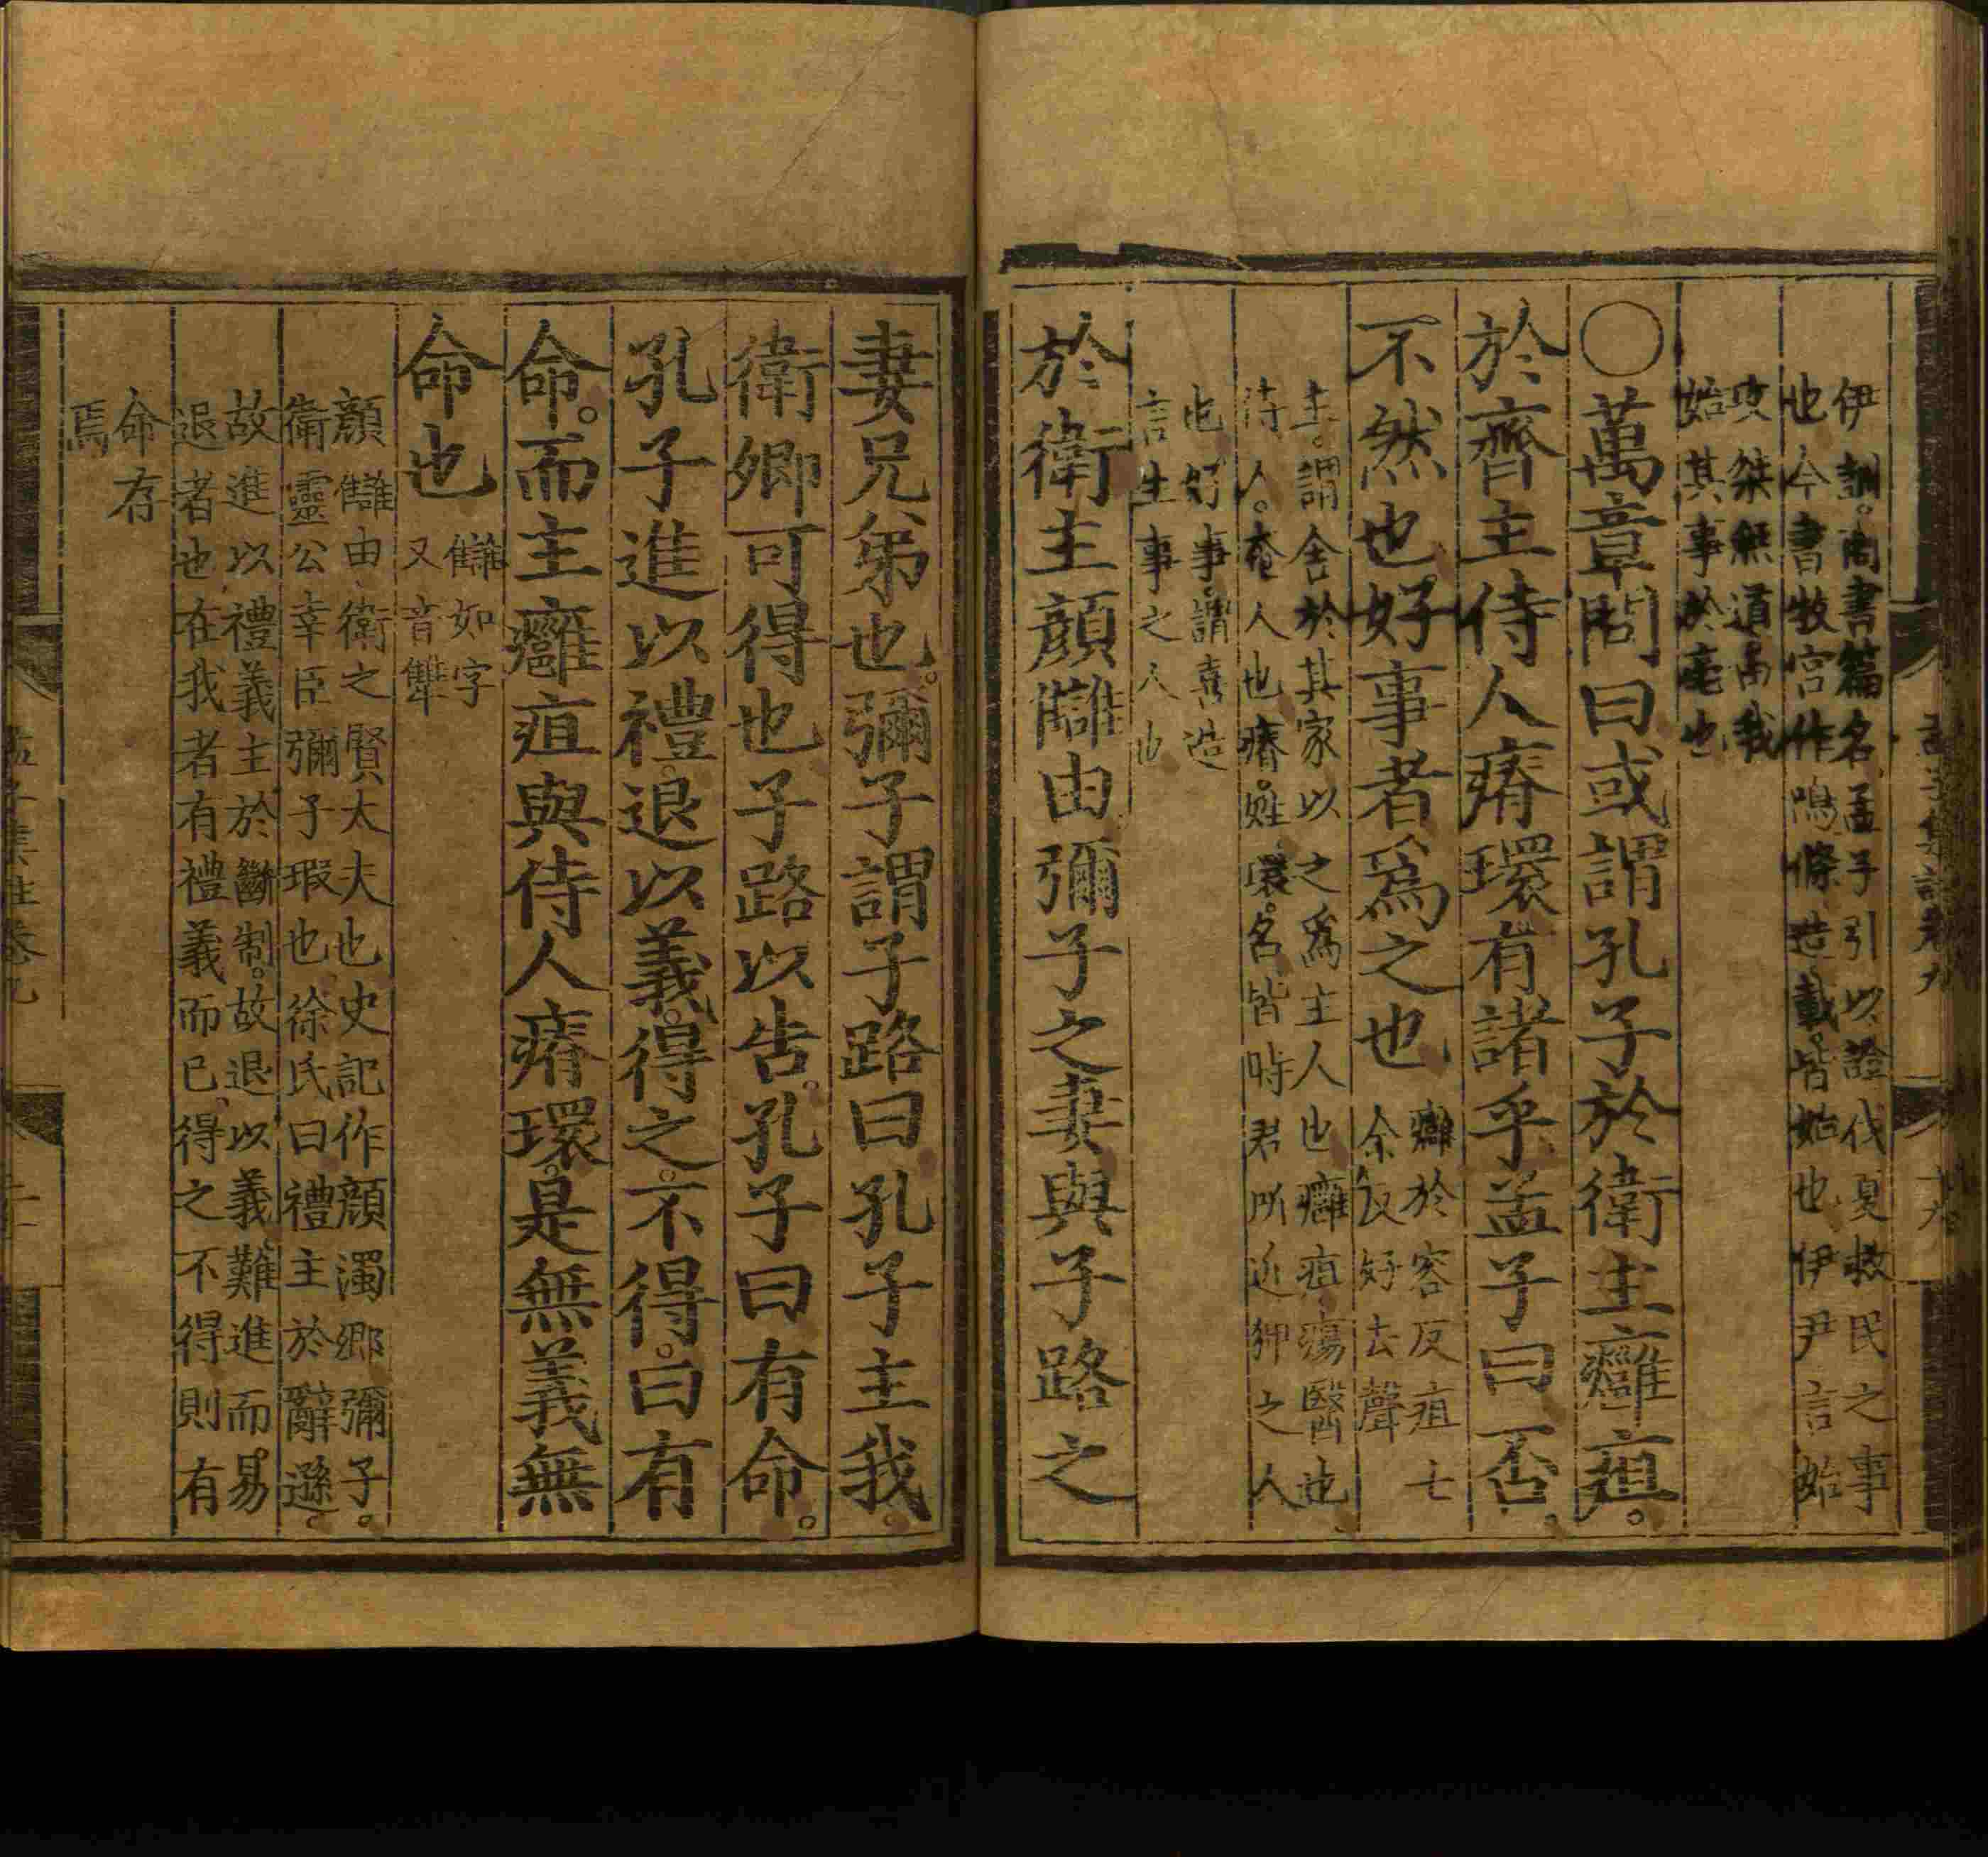 伊訓。商書篇名。孟子引以證伐夏救民之事
也今書牧宮作鳴條造戴皆始也伊尹言始
攻桀無道由我
始其事於亳也
○萬章問曰或謂孔子於衛主癰疽。
於齊主侍人瘠環有諸乎孟子曰否。
不然也好事者爲之也
癰於容反疽七
余反好去聲
主。謂舍於其家以之爲主人也癰疽瘍醫也
侍人。奄人也瘠。姓環。名皆時君所近狎之人
也好事。謂喜造
言生事之人也
於衛主顏讎由彌子之妻與子路之
孟子集註卷九 十九
妻兄弟也。彌子謂子路曰孔子主我。
衛卿可得也子路以告。孔子曰有命。
孔子進以禮退以義。得之。不得。曰有
命。而主癰疽與侍人瘠環。是無義無
命也
讎如字
又音犨
顏讎由衛之賢大夫也史記作顏濁鄒彌子。
衛靈公幸臣彌子瑕也徐氏曰禮主於辭遜。
故進以禮義主於斷制。故退以義難進而易
退者也在我者有禮義而已。得之不得則有
命存
焉
孟子集註卷九 二十